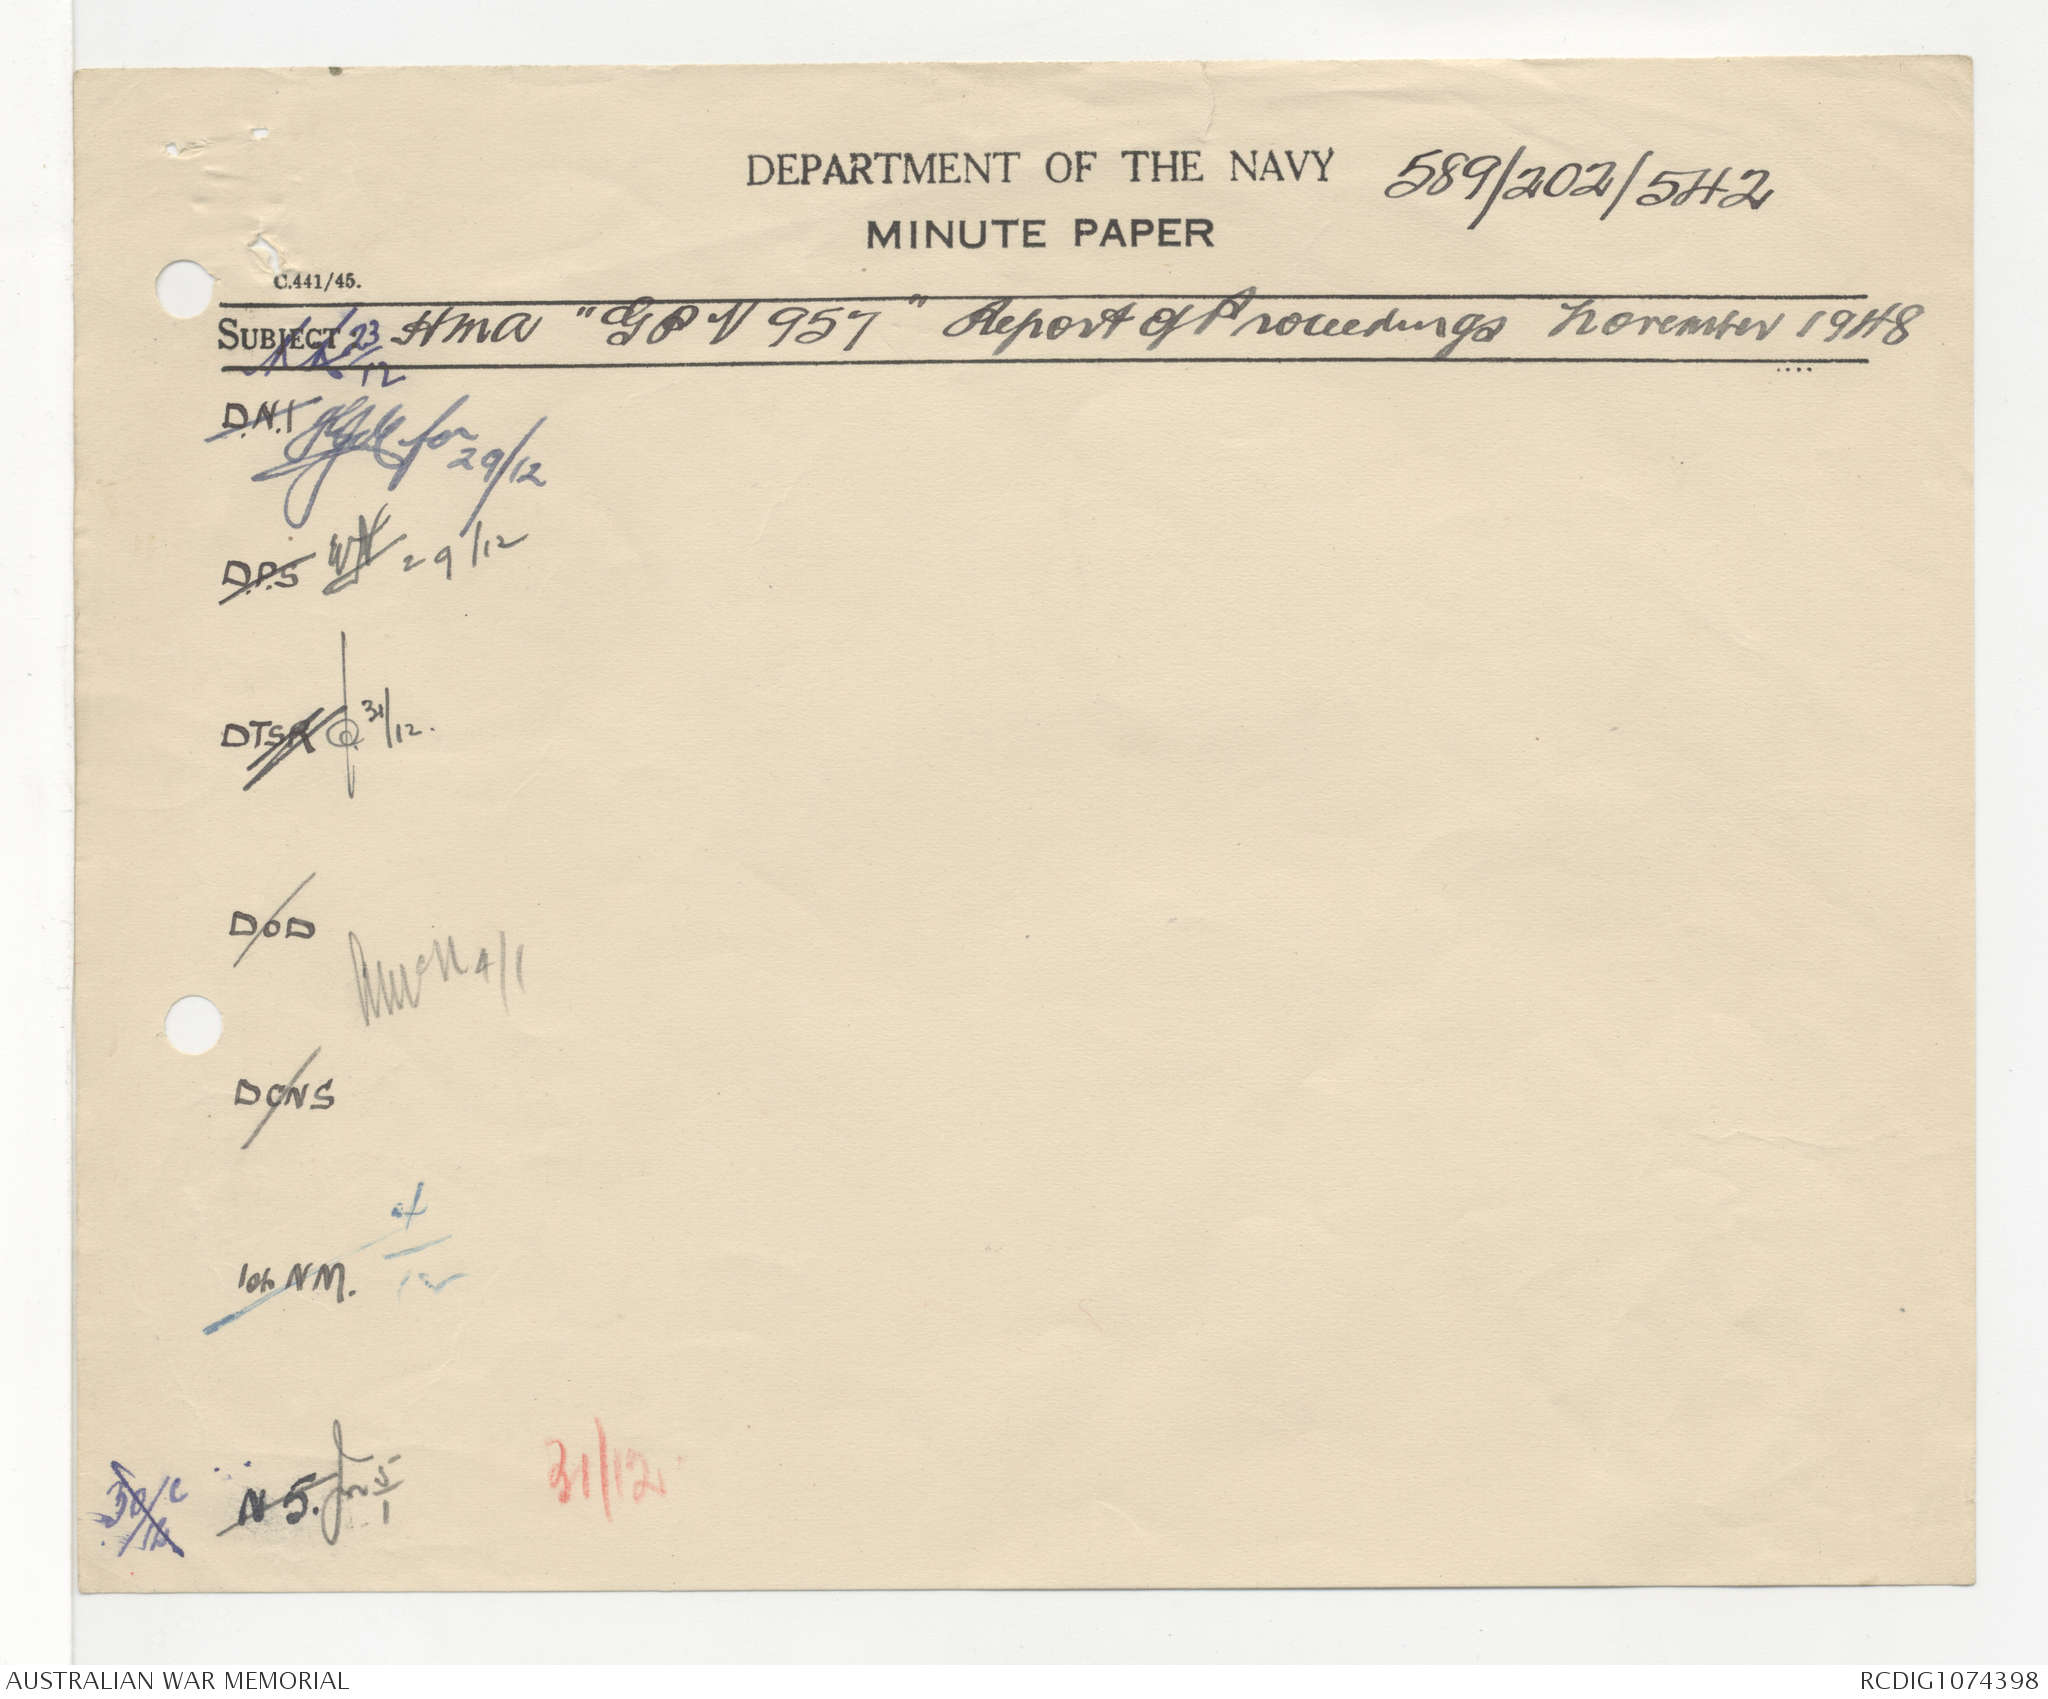 DEPARTMENT OF THE NAVY 589/202/542
MINUTE PAPER
C.441/45.
SUBJECT HMA "GPV 957" Report of Proceedings November 1948
23/12
D.N.I for 29/12
D.P.S 29/12
DTSR 31/12.
DOD
4/1
DCNS
NM.
N 5. 5/1
31/12
AUSTRALIAN WAR MEMORIAL
RCDIG1074398